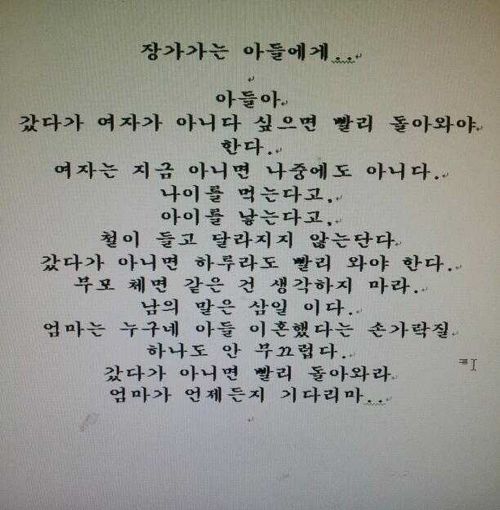 장가가는 아들에게..
아들아
갔다가 여자가 아니다 싶으면 빨리 돌아와야
한다.
여자는 지금 아니면 나중에도 아니다.
나이를 먹는다고,
아이를 낳는다고,
철이 들고 달라지지 않는단다
갔다가 아니면 하루라도 빨리 와야 한다.
부모 체면 같은 건 생각하지 마라.
남의 말은 삼일 이다.
엄마는 누구네 아들 이혼했다는 손가락질
하나도 안 무끄럽다.
갔다가 아니면 빨리 돌아와라
엄마가 언제든지 기다리마..